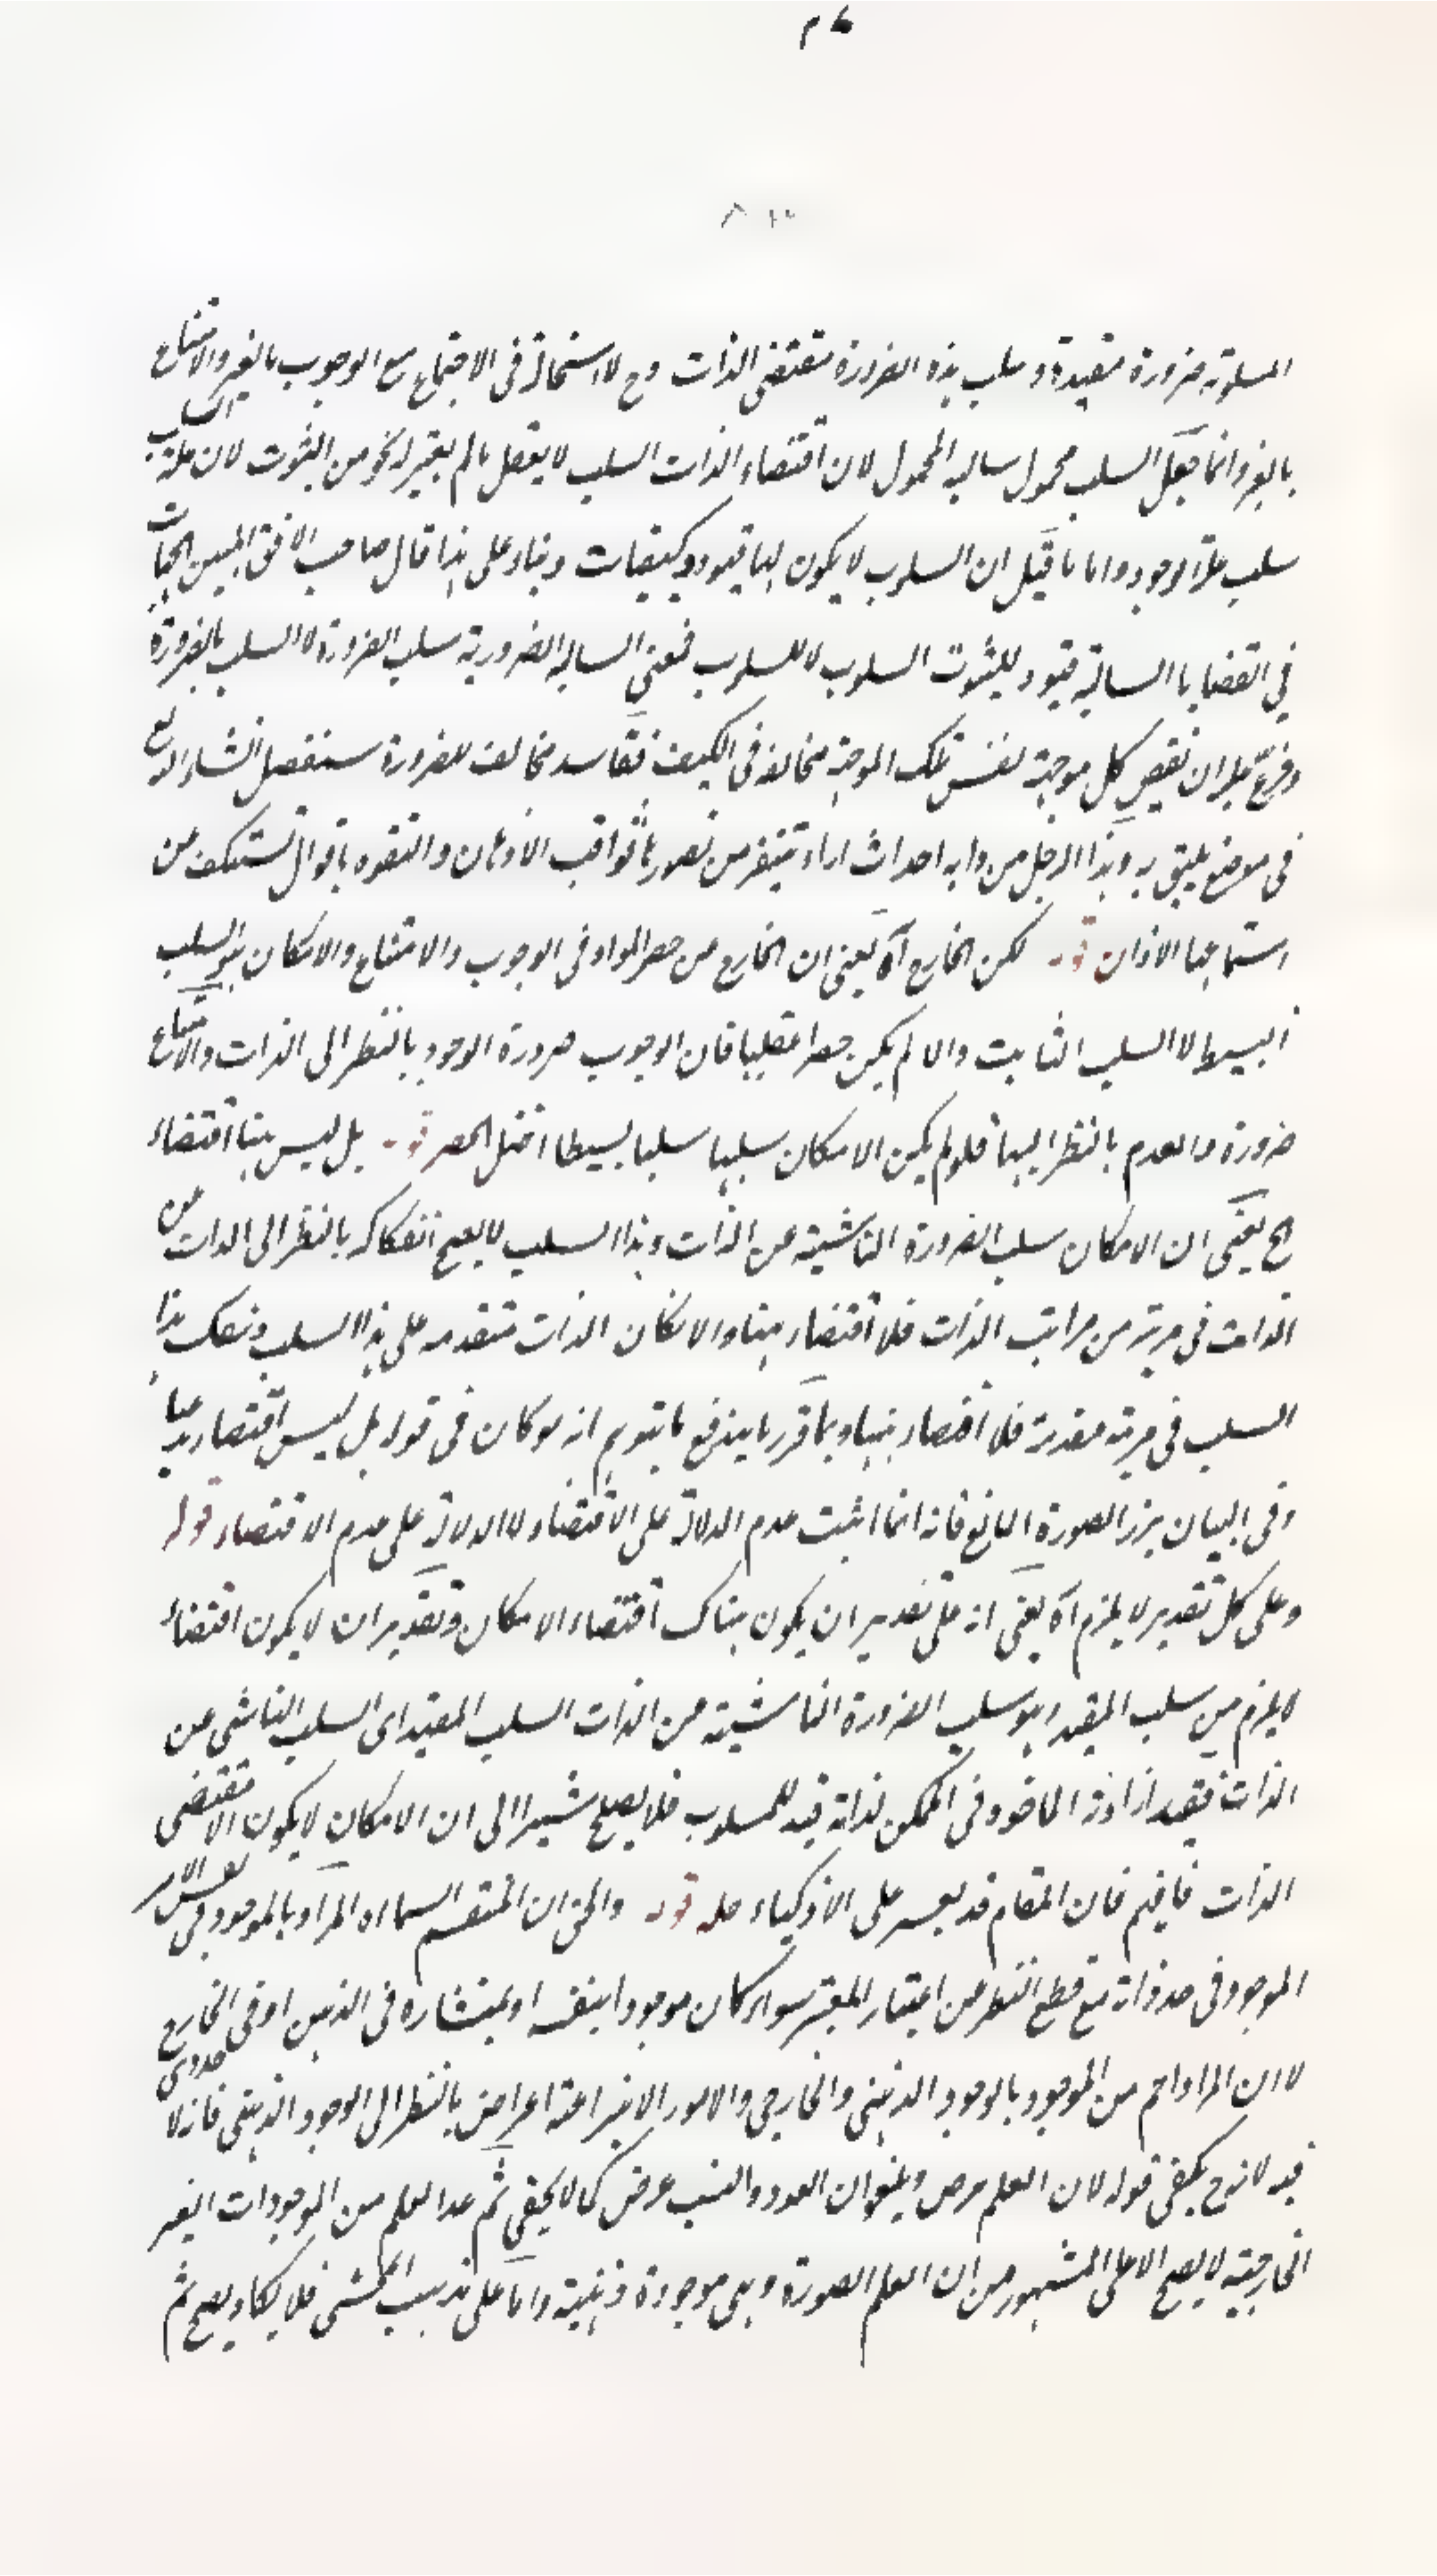 المسلوبة ضرورة مقيدة وسلب هذه الضرورة مقتضى الذات وح لا استحالة فى الاجتماع مع الوجوب بالغير والامتناع
بالغير وانما جعل السلب محمول سالبة المحمول لان اقتضاء الذات السلب لا يعقل ما لم يعتبر له نحو من الثبوت لان علة السلب
سلب علة الوجود واما ما قيل ان السلوب لا يكون لها قيود وكيفيات وبناء على هذا قال صاحب الافق المبين الجهات
فى القضايا السالبة قيود للثبوت المسلوب لا للسلوب فمعنى السالبة الضرورية سلب الضرورة لا السلب بالضرورة
وفرع عليه ان نقيض كل موجهة نفس تلك الموجهة مخالفة فى الكيف ففاسد مخالف للضرورة سنفصل انشاء الله تع
فى موضع يليق به وهذا الرجل من دابه احداث اراء يتنفر من تصورها ثواقب الاذهان والتفوه باقوال تستنكف عن
استماعها الاذان قوله لكن الخارج آه يعنى ان الخارج من حصر المواد فى الوجوب والامتناع والامكان هو السلب
البسيط لا السلب الثابت والا لم يكن حصرا عقليا فان الوجوب ضرورة الوجود بالنظر الى الذات والامتناع
ضرورة العدم بالنظر اليها فلو لم يكن الامكان سلبها سلبا بسيطا اختل الحصر قوله بل ليس هنا اقتضاء
اح يعنى ان الامكان سلب الضرورة الناشية عن الذات وهذا السلب لا يصح انفكاكه بالنظر الى الذات عن
الذات فى مرتبة من مراتب الذات فلا اقتضاء هنا والا لكان الذات متقدمة على هذا السلب وينفك هذا
السلب فى مرتبة مقدمة فلا اقتضاء هنا وبما قررنا يندفع ما يتوهم انه لو كان فى قوله بل ليس اقتضاء
وفى البيان برز الصورة المانع فانه انما اثبت عدم الدلالة على الاقتضاء لا الدلالة على عدم الاقتضاء قوله
وعلى كل تقدير لا يلزم آه يعنى انه على تقدير ان يكون هناك اقتضاء الامكان وتقدير ان لا يكون اقتضاء
لا يلزم من سلب المقيد وهو سلب الضرورة الناشية عن الذات السلب المقيد اى السلب الناشى عن
الذات فقيد لذاته الماخوذ فى الممكن لذاته قيد للمسلوب فلا يصلح مشيرا الى ان الامكان لا يكون الا مقتضى
الذات فافهم فان المقام قد يعسر على الاذكياء حله قوله والحق ان المنقسم اليهما اه المراد بالموجود فى نفس الامر
الموجود فى حد ذاته مع قطع النظر عن اعتبار المعتبر سواء كان موجودا بنفسه او بمنشاءه فى الذهن او فى الخارج
لا ان المراد اعم من الموجود بالوجود الذهنى والخارجى والامور الانتزاعية اعراض بالنظر الى الوجود الذهنى فانه لا جدوى
فيه لانه ح يكفى قوله لان العلم عرض ويلغو ان العدد والنسب عرض كما لا يخفى ثم عد العلم من الموجودات الغير
الخارجية لا يصح الا على المشهور من ان العلم الصورة وهى موجودة ذهنية واما على مذهب المحشى فلا يكاد يصح ثم